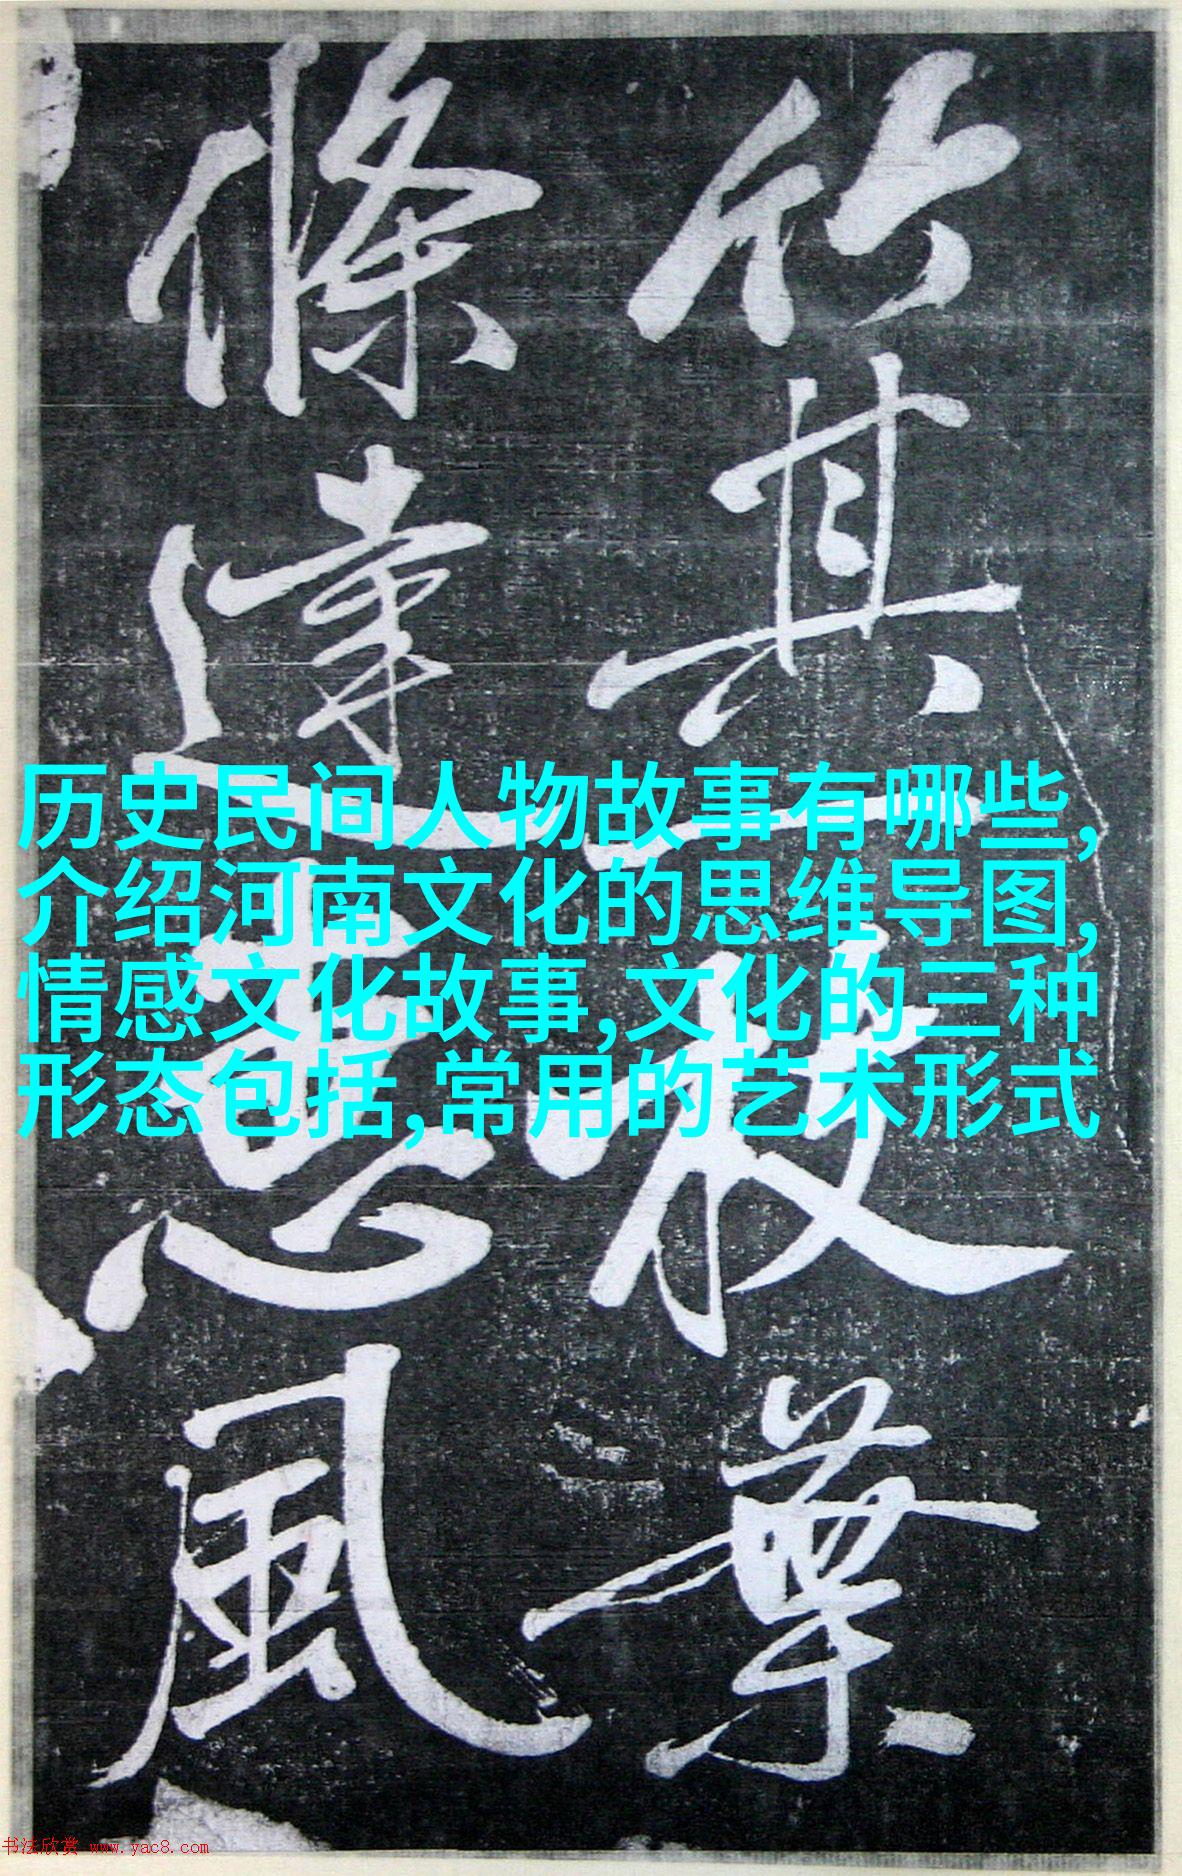 竹其一枝葉
條達惠風
历史民间人物故事有哪些,
介绍河南文化的思维导图,
情感文化故事,文化的三种
形态包括,常用的艺术形式
书法欣赏 www.yac8.com